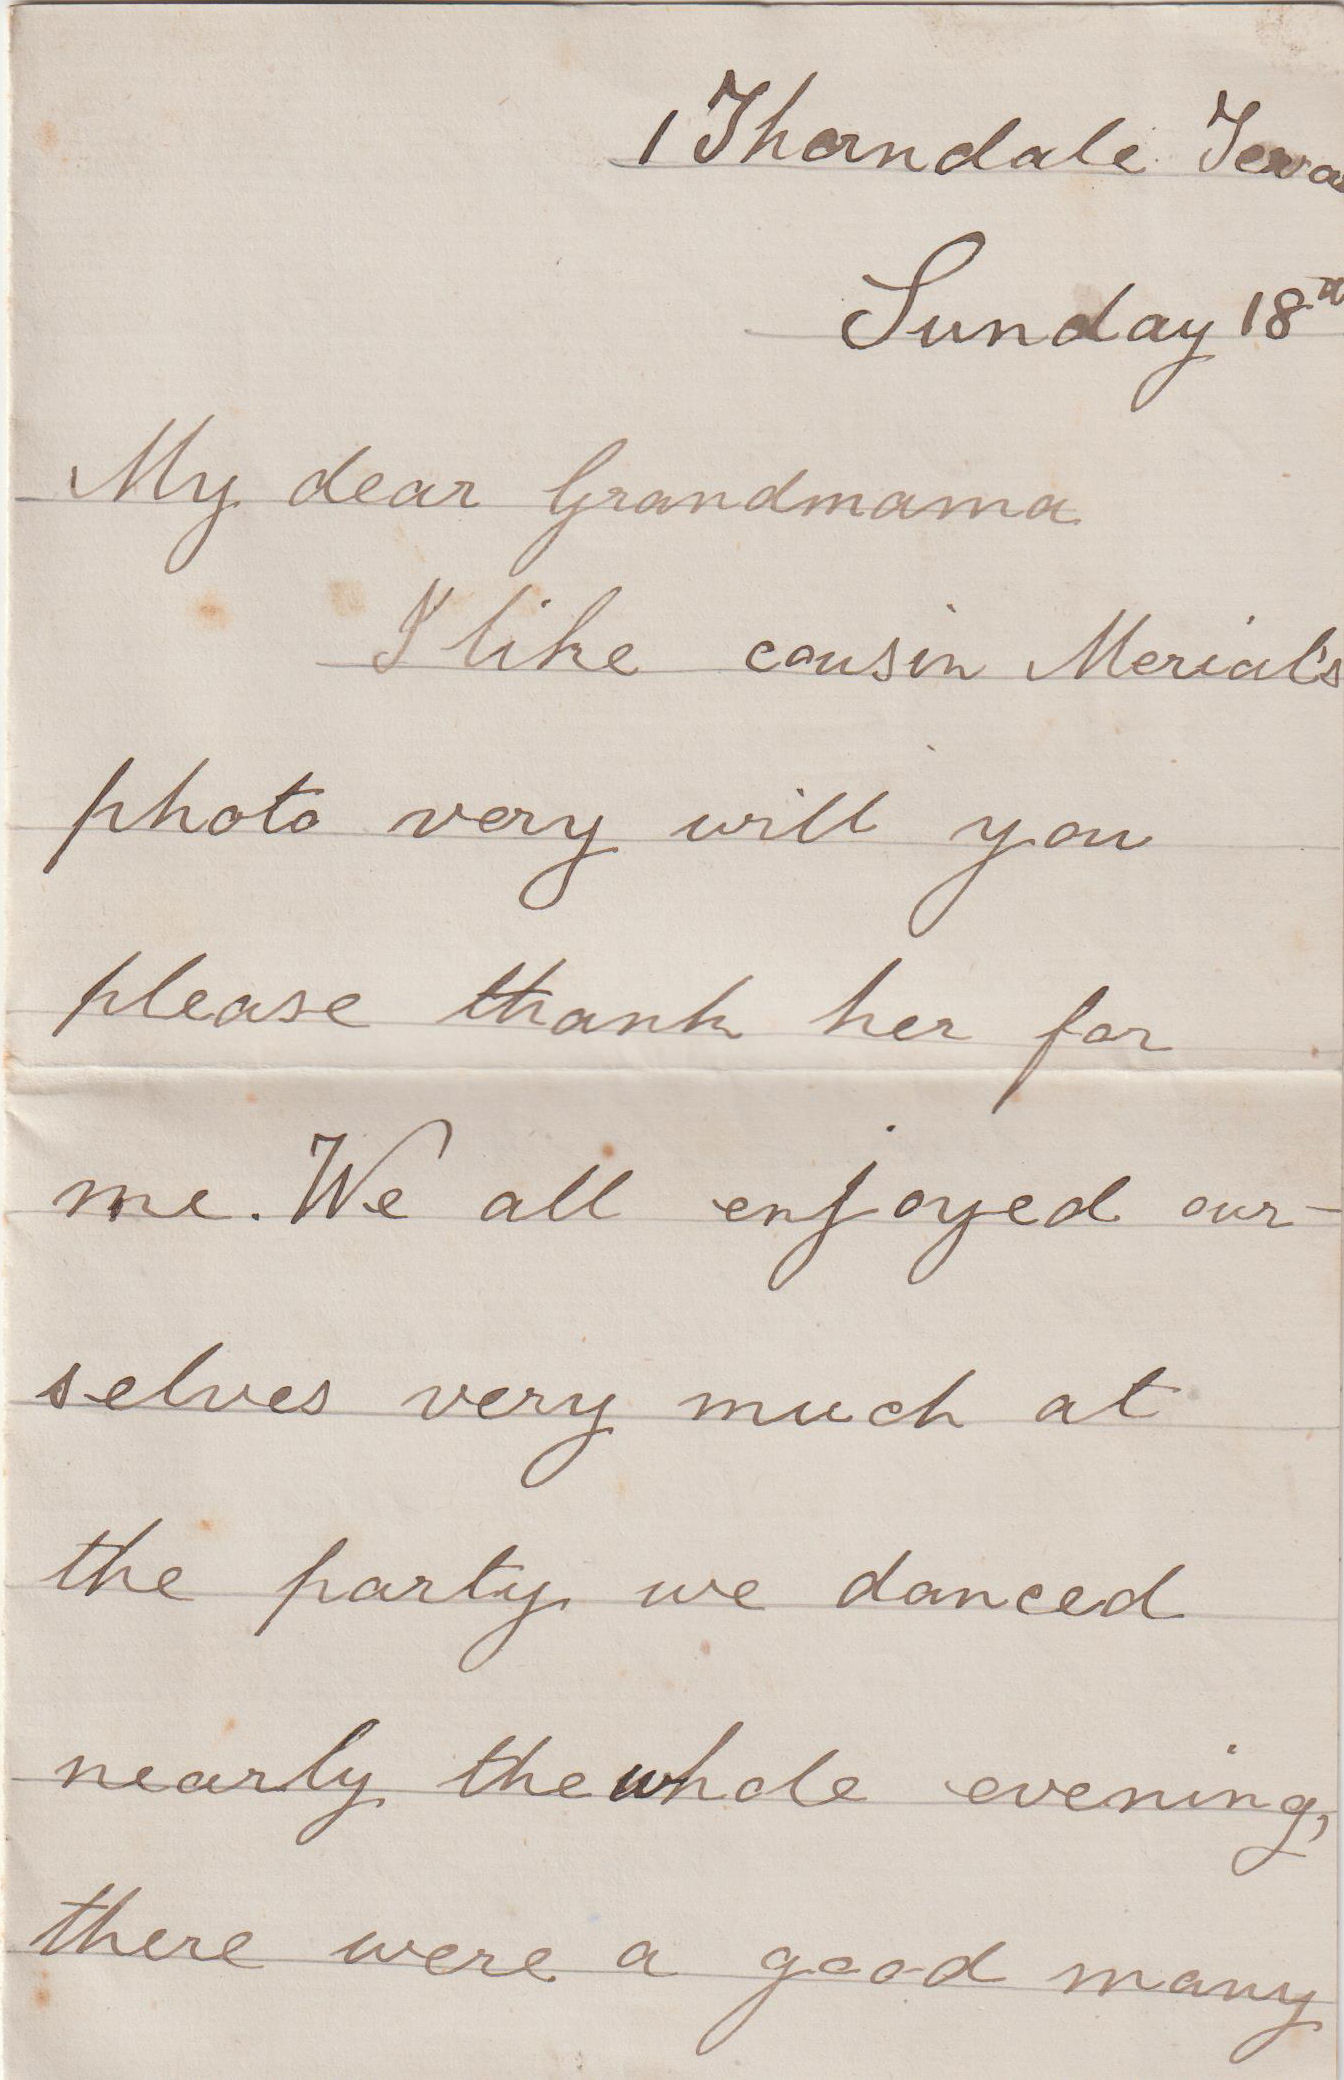 1 Thorndale Terra
Sunday 18th
My dear Grandmama
I like cousin Merial's
photo very will you
please thank her for
me. We all enjoyed our-
selves very much at
the party we danced
nearly the whole evening,
there were a good many